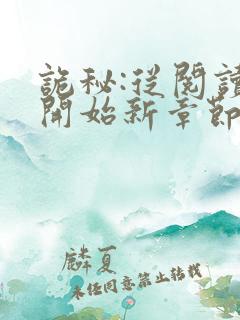 詭秘:從閱讀
開始新章節
麟夏
未經同意禁止轉載